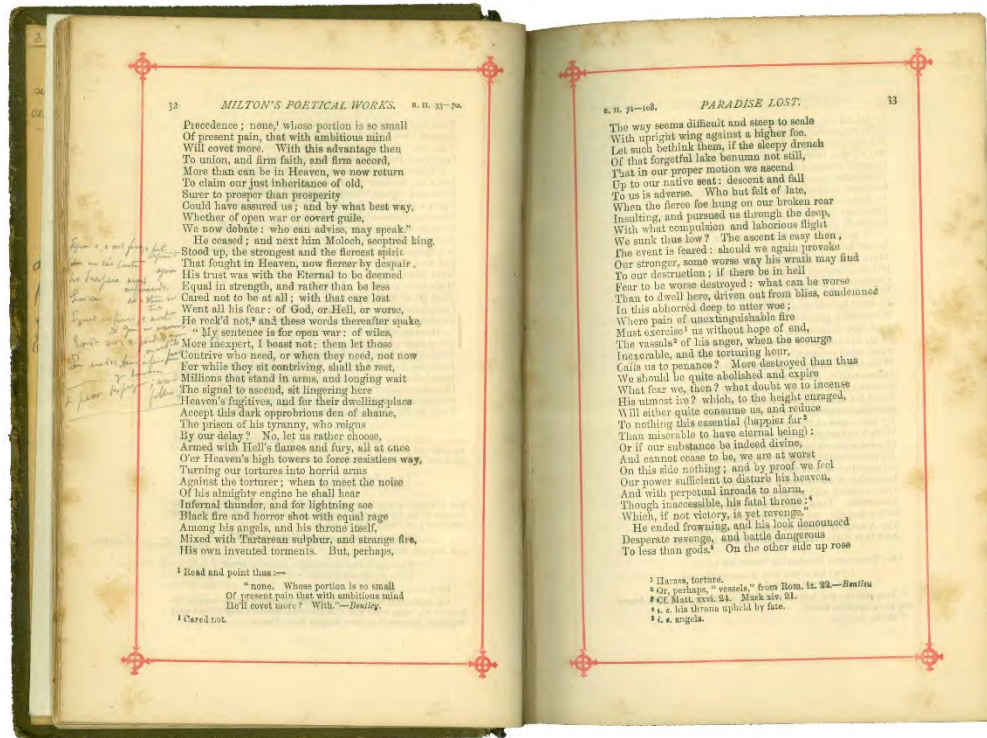 32 MILTON'S POETICAL WORKS. B. II. 33–70.
Precedence; none,¹ whose portion is so small
Of present pain, that with ambitious mind
Will covet more. With this advantage then
To union, and firm faith, and firm accord,
More than can be in Heaven, we now return
To claim our just inheritance of old,
Surer to prosper than prosperity
Could have assured us; and by what best way,
Whether of open war or covert guile,
We now debate: who can advise, may speak."
He ceased; and next him Moloch, sceptred king,
Stood up, the strongest and the fiercest spirit
That fought in Heaven, now fiercer by despair.
His trust was with the Eternal to be deemed
Equal in strength, and rather than be less
Cared not to be at all; with that care lost
Went all his fear: of God, or Hell, or worse,
He reck'd not,² and these words thereafter spake.
"My sentence is for open war: of wiles,
More inexpert, I boast not: them let those
Contrive who need, or when they need, not now
For while they sit contriving, shall the rest,
Millions that stand in arms, and longing wait
The signal to ascend, sit lingering here
Heaven's fugitives, and for their dwelling-place
Accept this dark opprobrious den of shame,
The prison of his tyranny, who reigns
By our delay? No, let us rather choose,
Armed with Hell's flames and fury, all at once
O'er Heaven's high towers to force resistless way,
Turning our tortures into horrid arms
Against the torturer; when to meet the noise
Of his almighty engine he shall hear
Infernal thunder, and for lightning see
Black fire and horror shot with equal rage
Among his angels, and his throne itself,
Mixed with Tartarean sulphur, and strange fire,
His own invented torments. But, perhaps,
¹ Read and point thus:—
"none. Whose portion is so small
Of present pain that with ambitious mind
He'll covet more? With."—Bentley.
¹ Cared not.
B. II. 71–108. PARADISE LOST. 33
The way seems difficult and steep to scale
With upright wing against a higher foe.
Let such bethink them, if the sleepy drench
Of that forgetful lake benumn not still,
That in our proper motion we ascend
Up to our native seat: descent and fall
To us is adverse. Who but felt of late,
When the fierce foe hung on our broken rear
Insulting, and pursued us through the deep,
With what compulsion and laborious flight
We sunk thus low? The ascent is easy then,
The event is feared: should we again provoke
Our stronger, some worse way his wrath may find
To our destruction; if there be in hell
Fear to be worse destroyed: what can be worse
Than to dwell here, driven out from bliss, condemned
In this abhorréd deep to utter woe;
Where pain of unextinguishable fire
Must exercise¹ us without hope of end,
The vassals² of his anger, when the scourge
Inexorable, and the torturing hour,
Calls us to penance? More destroyed than thus
We should be quite abolished and expire
What fear we, then? what doubt we to incense
His utmost ire? which, to the height enraged,
Will either quite consume us, and reduce
To nothing this essential (happier far³
Than miserable to have eternal being):
Or if our substance be indeed divine,
And cannot cease to be, we are at worst
On this side nothing; and by proof we feel
Our power sufficient to disturb his heaven,
And with perpetual inroads to alarm,
Though inaccessible, his fatal throne:⁴
Which, if not victory, is yet revenge."
He ended frowning, and his look denounced
Desperate revenge, and battle dangerous
To less than gods.⁵ On the other side up rose
¹ Harass, torture.
² Or, perhaps, "vessels," from Rom. ix. 22.—Bentley
³ Cf. Matt. xxvi. 24. Mark xiv. 21.
⁴ i. e. his throne upheld by fate.
⁵ i. e. angels.